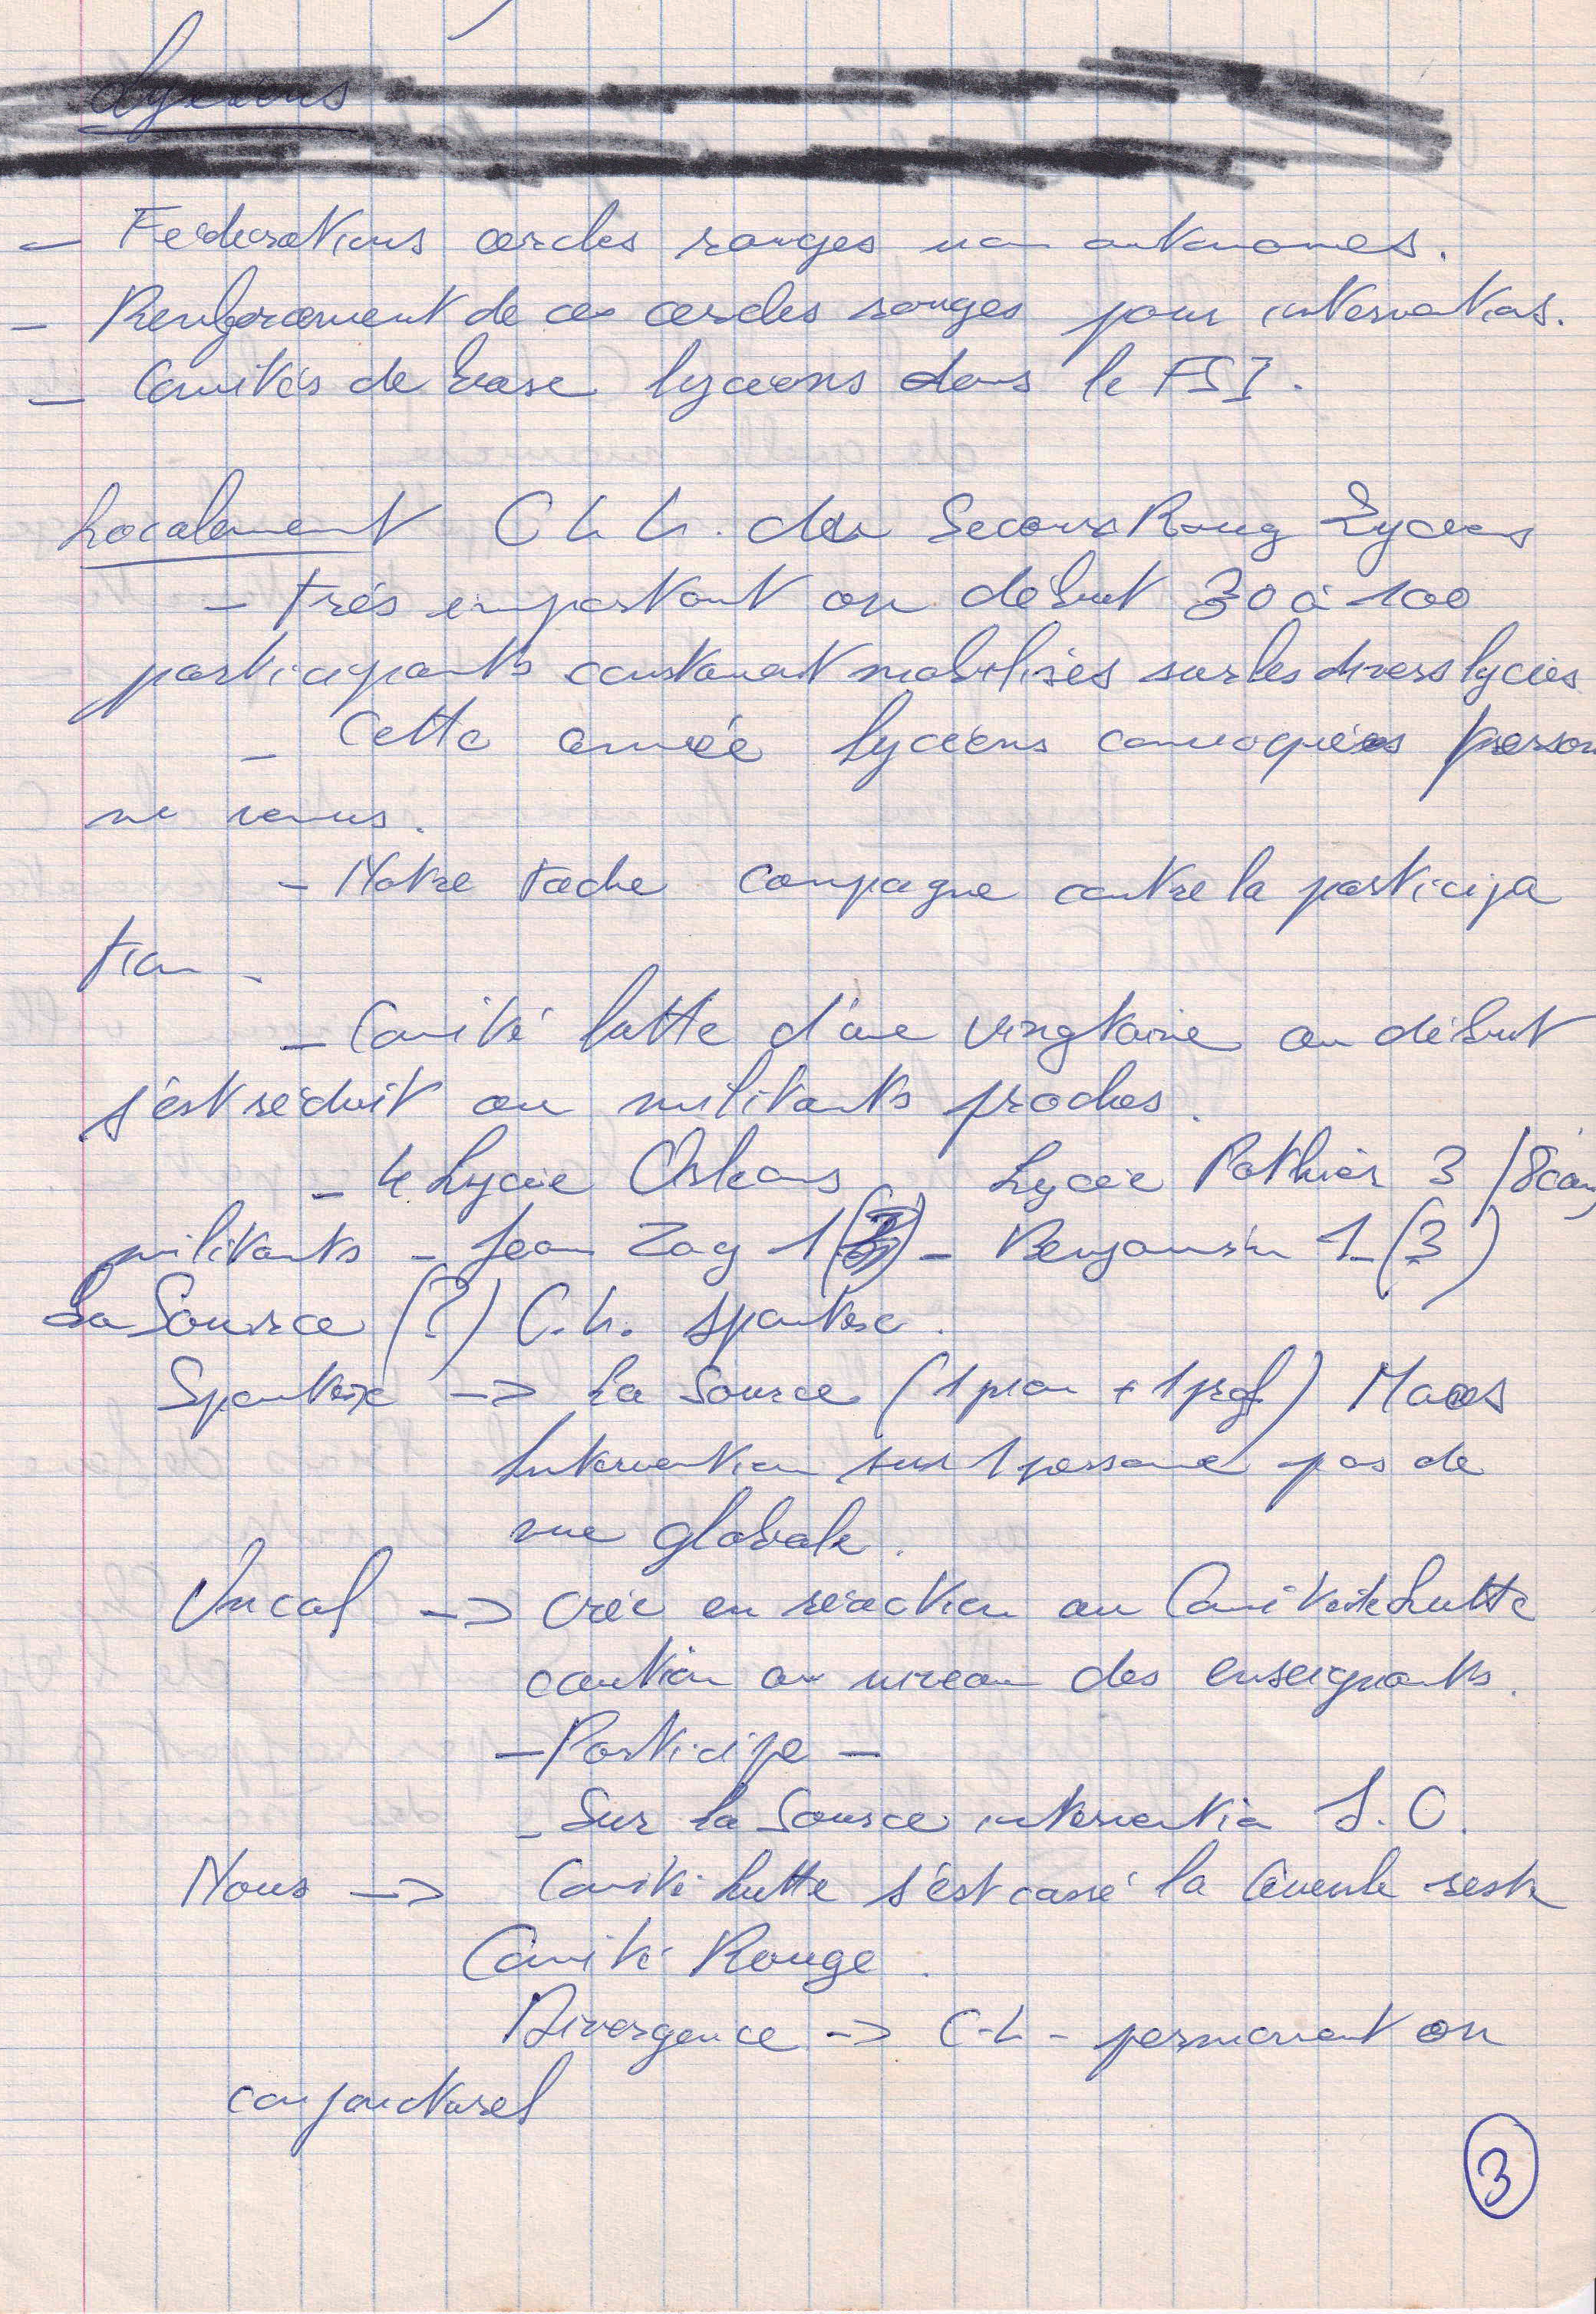 Lycéens
- Federations cercles rouges non autonomes.
- Renforcement de ces cercles rouges pour interventions.
- Comités de base lycéens dans le FSI.
Localement C L L. du Secours Roug Lycéens
- très important au début 30 à 100
participants constamat mobilisés sur les divers lycées
- Cette année lycéens convoquées person
ne venus.
- Notre tache campagne contre la participa
tion -
- Comité lutte d'une vingtaine au début
s'est réduit au militants proches.
- 4 Lycée Orleans Lycée Pothier 3
militants - Jean Zay 1 - Benjamin 1 (3)
La Source (?) C.L. spontex.
Spontex -> La Source (1 pion + 1 prof) Maos
Intervention sur 1 personne pas de
vue globale.
Uncal -> créé en réaction au Comité Lutte
caution au niveau des enseignants.
- Participe -
- Sur la Source intervention J.C.
Nous -> Comité lutte s'est cassé la Gueule reste
Comité Rouge.
Divergence -> C-L- permanent ou
conjoncturel
3